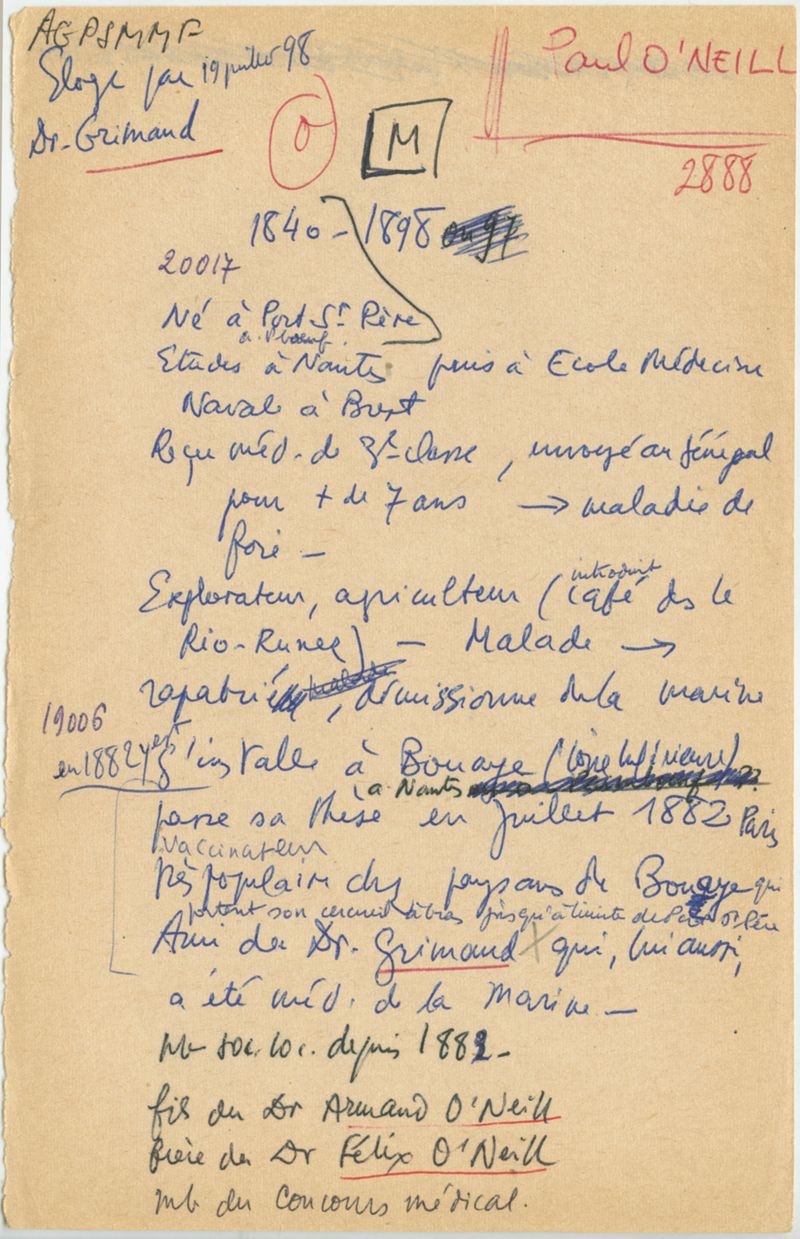 AGPSMMF
Eloge par 19 juillet 98
Dr. Grimaud
Paul O'NEILL
O
M
2888
1840 - 1898 ou 97
20017
Né à Port-St Père
Etudes à Nantes puis à Ecole Médecine
Navale à Brest
Reçu méd. de 3e classe, envoyé au Sénégal
pour + de 7 ans → maladie de
foie -
introduit
Explorateur, agriculteur (café ds le
Rio-Runez) - Malade →
rapatrié, démissionne de la marine
19006
en 1882 s'installe à Bouaye (Loire Inférieure)
à Nantes
passe sa thèse en juillet 1882 Paris
vaccinateur
très populaire chez paysans de Bouaye qui
portent son cercueil à bras jusqu'à limite de Port St Père
Ami du Dr. Grimaud X qui, lui aussi,
a été méd. de la Marine -
mb soc. loc. depuis 1882 -
fils du Dr Armand O'Neill
frère du Dr Félix O'Neill
mb du Concours médical.